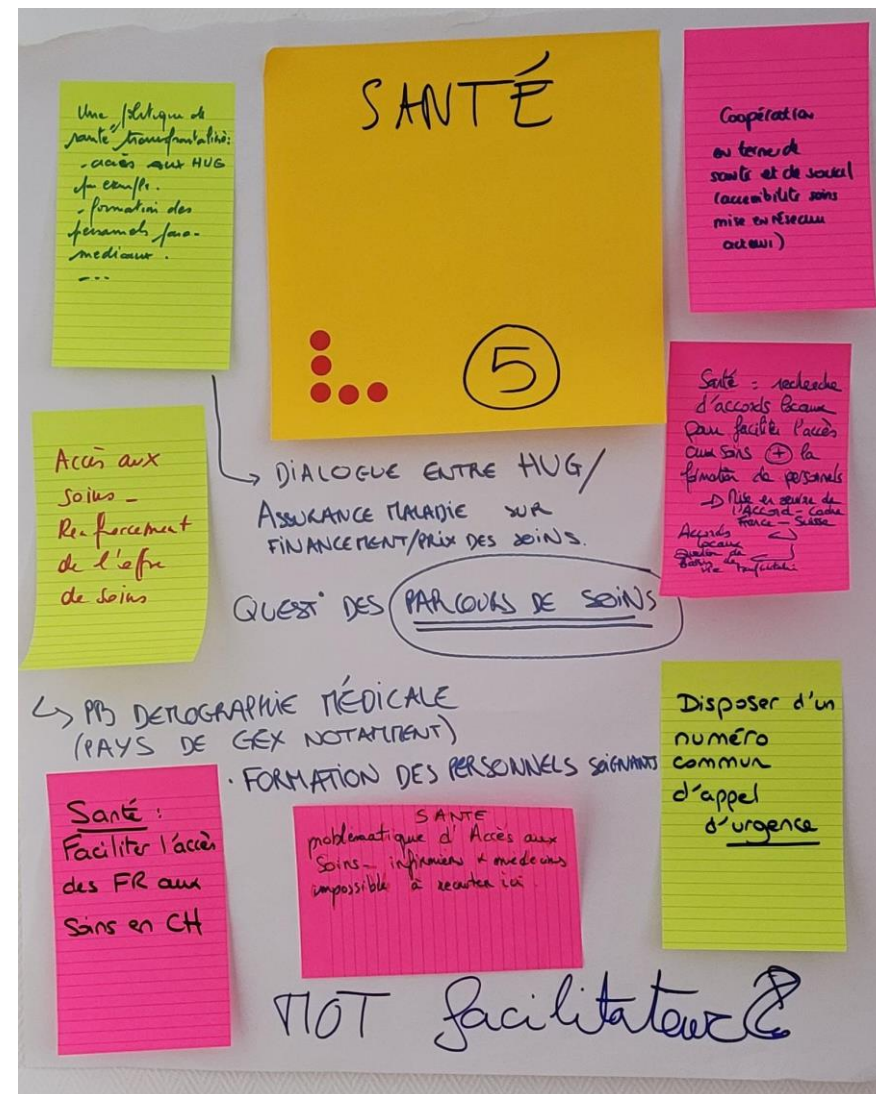 SANTÉ
5
Une politique de
santé transfrontalière:
- accès aux HUG
par exemple.
- formation des
personnels para-
médicaux.
---
Coopération
en terme de
santé et de social
(accessibilité soins
mise en réseau
acteurs)
Accès aux
soins -
Renforcement
de l'offre
de soins
Santé = recherche
d'accords locaux
pour faciliter l'accès
aux soins + la
formation de personnels
→ Mise en œuvre de
l'Accord-cadre
France-Suisse
Accords
locaux
↳ DIALOGUE ENTRE HUG/
ASSURANCE MALADIE SUR
FINANCEMENT/PRIX DES SOINS.
QUEST° DES PARCOURS DE SOINS
↳ PB DEMOGRAPHIE MÉDICALE
(PAYS DE GEX NOTAMMENT)
· FORMATION DES PERSONNELS SOIGNANTS
Disposer d'un
numéro
commun
d'appel
d'urgence
Santé :
Faciliter l'accès
des FR aux
Soins en CH
SANTE
problématique d'Accès aux
Soins - infirmiers & médecins
impossible à recruter ici.
MOT facilitateur